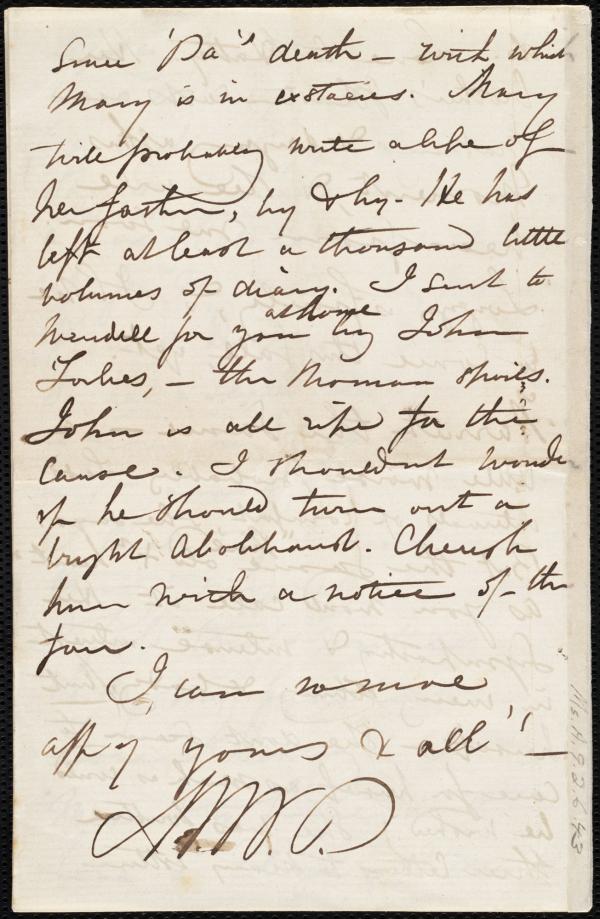 since 'Pa's death – with which
Mary is in exstacies. Mary
will probably write a life of
her father, by & by. He has
left at least a thousand little
volumes of diary. I sent to
Wendell for you at home by John
Forbes, – the Roman
John is all ripe for the
cause. I shouldn't wonder
if he should turn out a
bright Abolitionist. Cherish
him with a notice of the
fair.
I can no more
affy yours & all'! –
A.W.P.
Ms.A.9.2.6.43